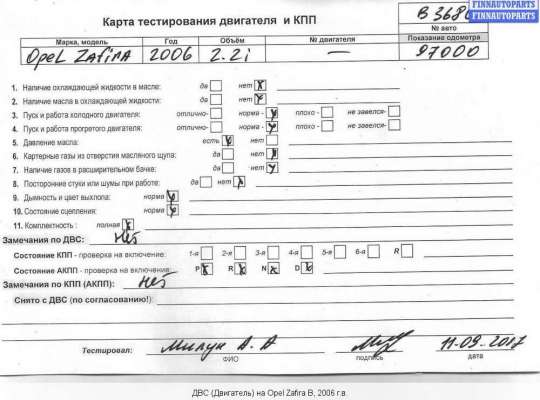 FINNAUTOPARTS
FINNAUTOPARTS
Карта тестирования двигателя и КПП
В 368
№ авто
Марка, модель Год Объём № двигателя Показание одометра
Opel Zafira 2006 2.2i — 97000
1. Наличие охлаждающей жидкости в масле: да нет
2. Наличие масла в охлаждающей жидкости: да нет
3. Пуск и работа холодного двигателя: отлично- норма - плохо - не завелся-
4. Пуск и работа прогретого двигателя: отлично- норма - плохо - не завелся-
5. Давление масла: есть нет
6. Картерные газы из отверстия масляного щупа: да нет
7. Наличие газов в расширительном бачке: да нет
8. Посторонние стуки или шумы при работе: да нет
9. Дымность и цвет выхлопа: норма
10. Состояние сцепления: норма
11. Комплектность : полная
Замечания по ДВС: Нет
Состояние КПП - проверка на включение: 1-я 2-я 3-я 4-я 5-я 6-я R
Состояние АКПП - проверка на включение: P R N D
Замечания по КПП (АКПП): Нет
Снято с ДВС (по согласованию!):
Тестировал: А. А 11-09-2017
ФИО подпись дата
ДВС (Двигатель) на Opel Zafira B, 2006 г.в.